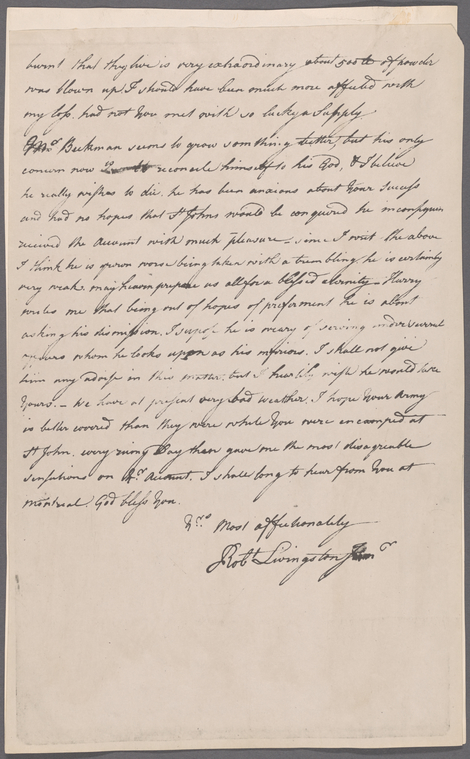 burnt that they live is very extraordinary about 500 lb of powder
was blown up I should have been much more affected with
my loss had not You met with so lucky a Supply
Mr. Beekman seems to grow something better, but his only
concern now is to reconcile himself to his God, & I believe
he really wishes to die. he has been anxious about Your Success
and had no hopes that St Johns would be conquered he in consequence
received the Account with much pleasure – since I writ the above
I think he is grown worse being taken with a trembling. he is certainly
very weak. may heaven prepare us all for a blessed eternity – Harry
writes me that being out of hopes of preferment he is about
asking his dismission. I suppose he is weary of serving under several
whom he looks upon as his inferiors. I shall not give
him any advise in this matter. but I heartily wish he would have
Yours. – We have at present very bad weather. I hope Your Army
is better covered than they were while You were encamped at
St John. every rainy Day then gave me the most disagreable
sensations on Yr. Account. I shall long to hear from You at
Montreal. God bless You.
Yrs. Most affectionately
Robt Livingston Junr